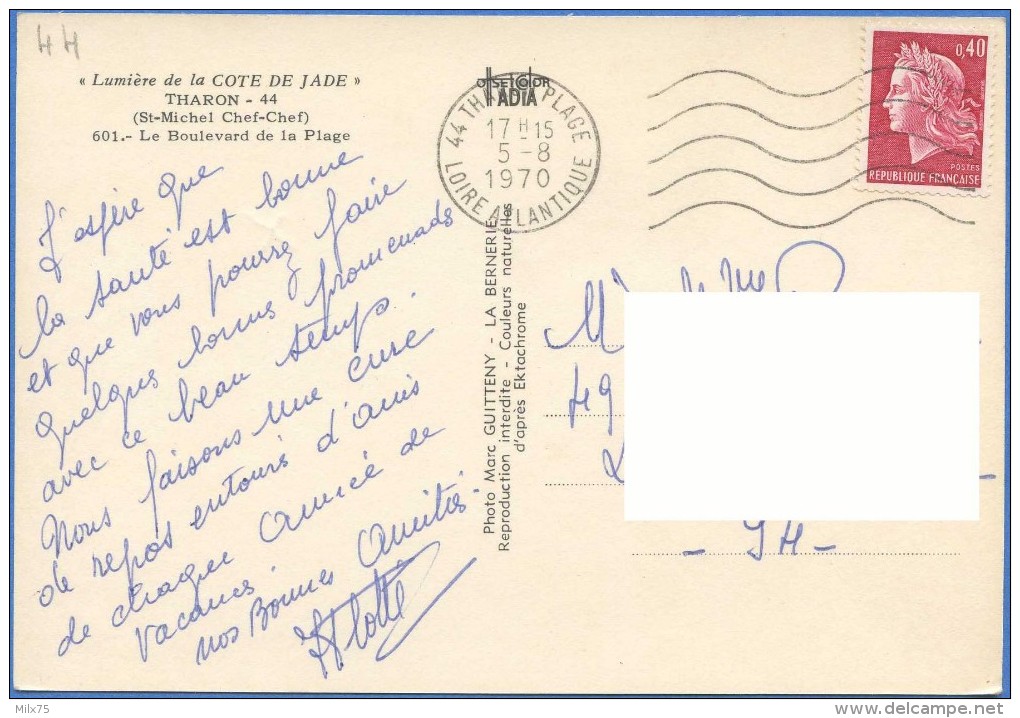 44
« Lumière de la COTE DE JADE »
THARON - 44
(St-Michel Chef-Chef)
601.- Le Boulevard de la Plage
J'espère que
la santé est bonne
et que vous pourrez faire
quelques bonnes promenades
avec ce beau temps.
Nous faisons une cure
de repos entourés d'amis
de chaque année de
vacances.
nos Bonnes Amitiés.
OFFSETCOLOR
IADIA
44 THARON PLAGE
17 H-15
5-8
1970
LOIRE ATLANTIQUE
Photo Marc GUITTENY - LA BERNERIE
Reproduction interdite - Couleurs naturelles
d'après Ektachrome
0,40
POSTES
REPUBLIQUE FRANÇAISE
49
Milx75
delcampe.net